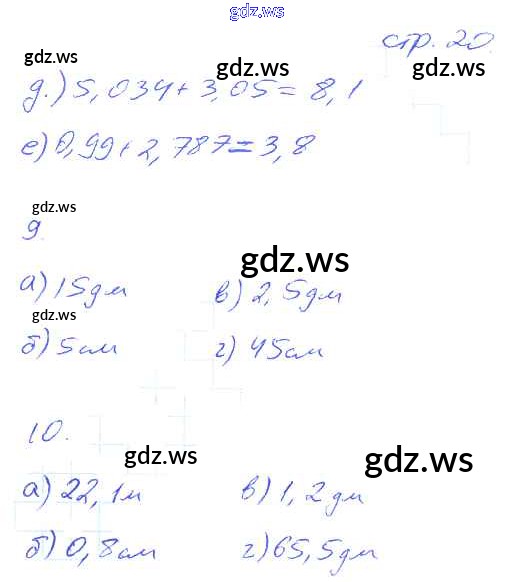 gdz.ws
стр. 20.
gdz.ws gdz.ws gdz.ws
д.) 5,034 + 3,05 = 8,1
е) 0,99 + 2,787 = 3,8
gdz.ws
9.
gdz.ws
а) 15дм в) 2,5дм
gdz.ws
б) 5см г) 45см
10.
gdz.ws gdz.ws
а) 22,1м в) 1,2дм
gdz.ws gdz.ws
б) 0,8см г) 65,5дм